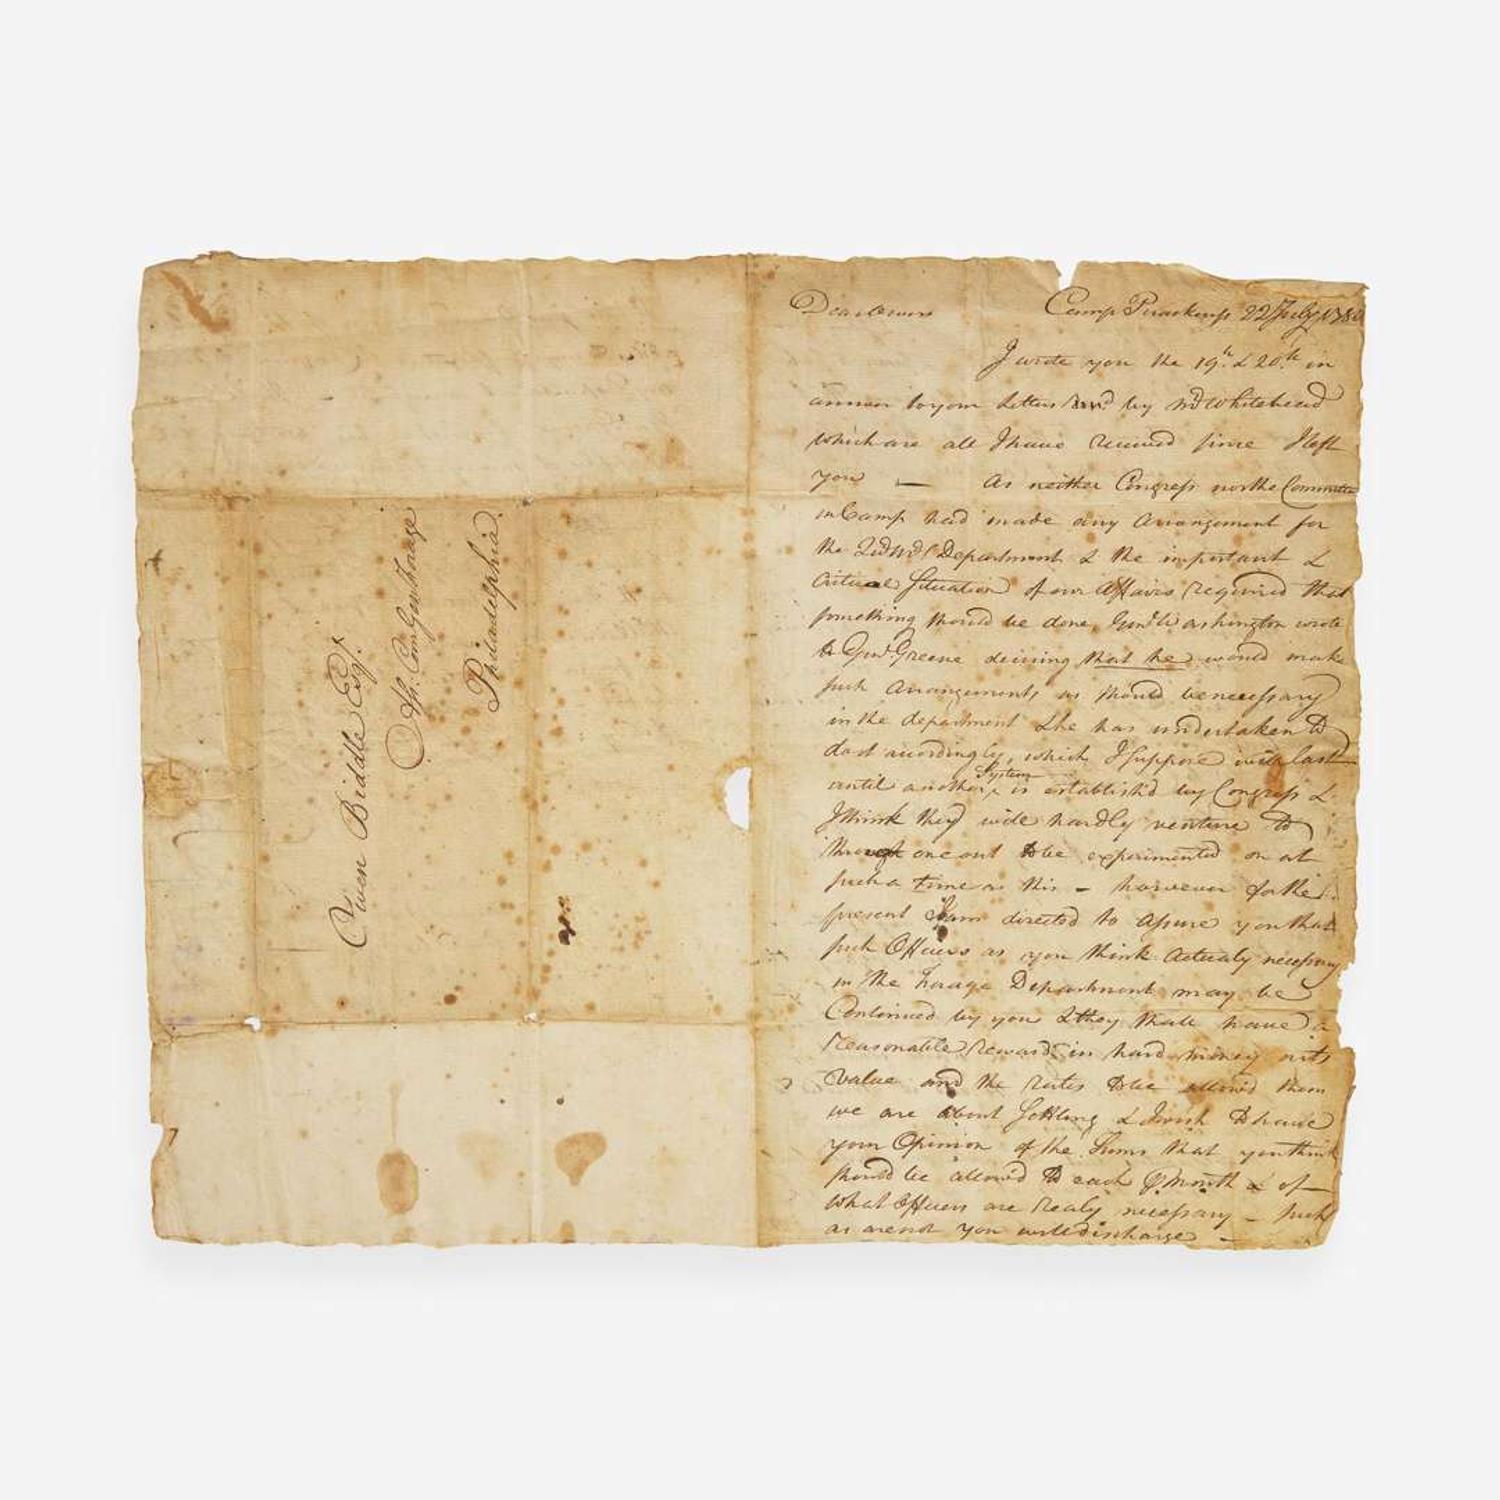 Owen Biddle Esqr.
Com Gen forage
Philadelphia
Dear Owen Camp Preakness 22 July 1780
I wrote you the 19th & 20th in
answer to your Letters by Whitehead
which are all I have received since I left
you — As neither Congress nor the Committee
in Camp had made any Arrangement for
the Department & the important &
Critical Situation of our Affairs required that
something should be done, Genl Washington wrote
to Genl Greene desiring that he would make
such Arrangements as should be necessary
in the department & he has undertaken to
do it accordingly, which I suppose will last
until another System is establish'd by Congress &
I think they will hardly venture to
one out to be experimented on at
such a time as this – however for the
present I am directed to assure you that
such Officers as you think Actualy necessary
in the Forage Department may be
Continued by you & they shall have a
reasonable reward in hard money or its
value and the rates to be allowed them
we are about Settling & I wish to have
your Opinion of the Sums that you think
should be allow'd to each Month & of
what Officers are realy necessary – Such
as are not you will discharge –